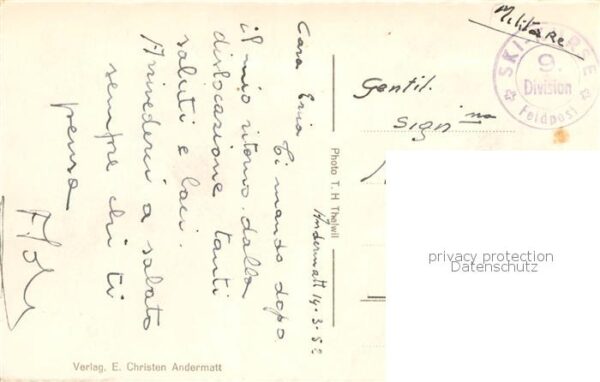 Militare
SKI-KURSE
9.
Division
Feldpost
Gentil.
Sign na
Andermatt 14.3.52
Cara Erica Ti mando dopo
il mio ritorno dalla
dislocazione tanti
saluti e baci.
Arrivederci a sabato
sempre chi ti
pensa
Photo T. H Thalwil
Verlag. E. Christen Andermatt
privacy protection
Datenschutz